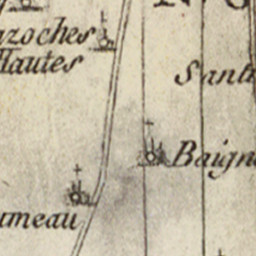 zoches
Hautes
Sant
Baign
umeau